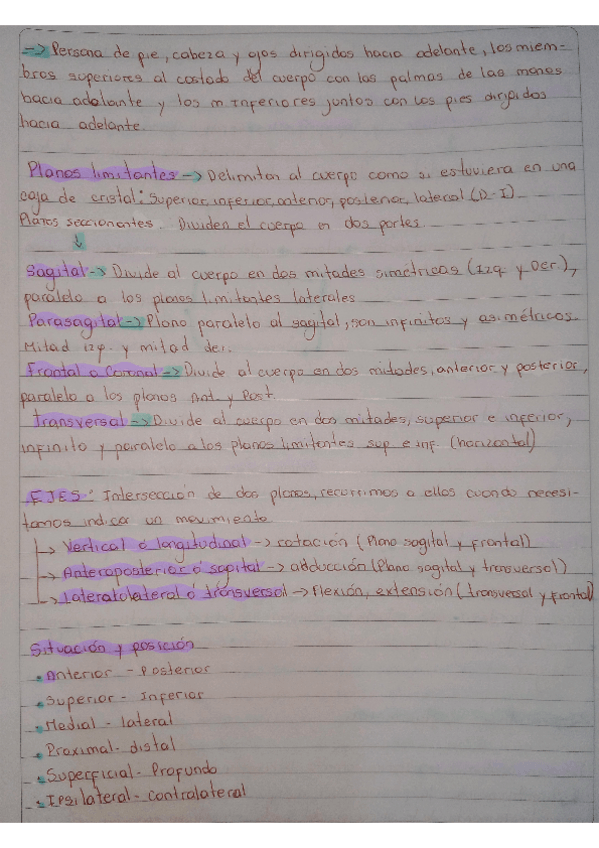 -> Persona de pie, cabeza y ojos dirigidos hacia adelante, los miem-
bros superiores al costado del cuerpo con las palmas de las manos
hacia adelante y los m inferiores juntos con los pies dirigidos
hacia adelante.
Planos limitantes -> Delimitan al cuerpo como si estuviera en una
caja de cristal: Superior, inferior, anterior, posterior, lateral (D-I)
Planos seccionantes. Dividen el cuerpo en dos partes.
↓
Sagital -> Divide al cuerpo en dos mitades simétricas (Izq y Der.),
paralelo a los planos limitantes laterales
Parasagital -> Plano paralelo al sagital, son infinitos y asimétricos.
Mitad izq. y mitad der.
Frontal o Coronal -> Divide al cuerpo en dos mitades, anterior y posterior,
paralelo a los planos Ant. y Post.
Transversal -> Divide al cuerpo en dos mitades, superior e inferior,
infinito y paralelo a los planos limitantes sup e inf. (horizontal)
EJES: Intersección de dos planos, recurrimos a ellos cuando necesi-
tamos indicar un movimiento
↳ Vertical o longitudinal -> rotación (Plano sagital y frontal)
↳ Anteroposterior ó sagital -> adducción (Plano sagital y transversal)
↳ Laterolateral ó transversal -> Flexión, extensión (transversal y frontal)
Situación y posición
• Anterior - Posterior
• Superior - Inferior
• Medial - lateral
• Proximal - distal
• Superficial - Profundo
• Ipsilateral - contralateral